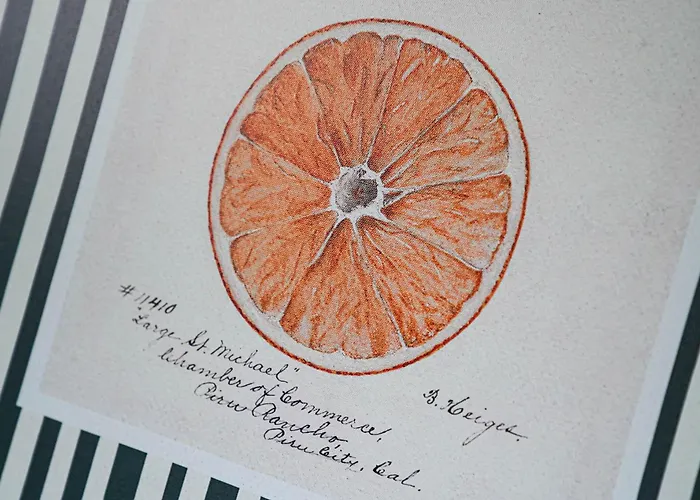 # 11410
"Large St. Michael"
Chamber of Commerce,
Piru Rancho,
Piru City, Cal.
B. Heiges.